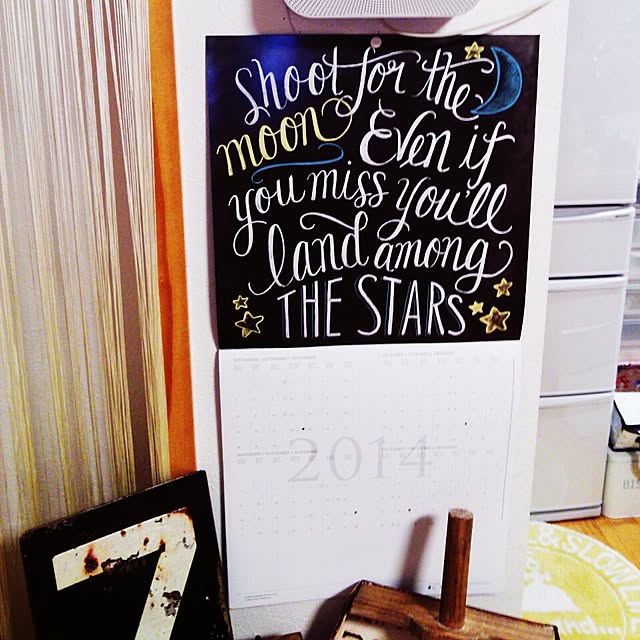 Shoot for the
moon
Even if
you miss You'll
land among
THE STARS
2014
7
& SLOW L
BIS